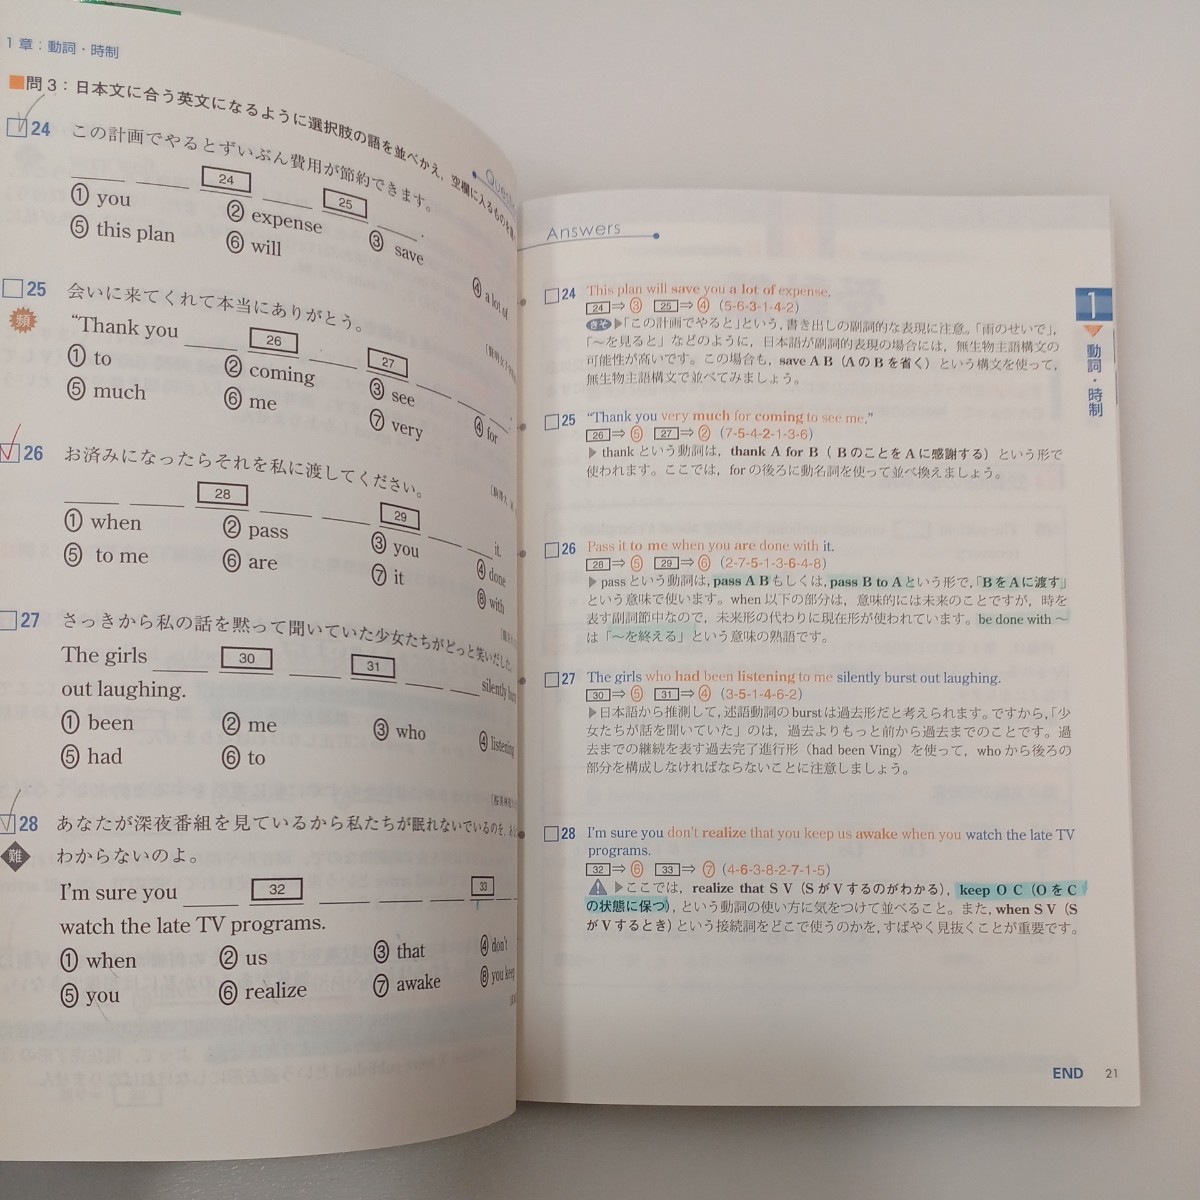 1章：動詞・時制
問3：日本文に合う英文になるように選択肢の語を並べかえ，空欄に入るものを
24 この計画でやるとずいぶん費用が節約できます。
24 25 .
① you ② expense ③ save ④ a lot of
⑤ this plan ⑥ will
25 会いに来てくれて本当にありがとう。
頻 “Thank you 26 27 .
① to ② coming ③ see ④ for
⑤ much ⑥ me ⑦ very
26 お済みになったらそれを私に渡してください。
28 29 it.
① when ② pass ③ you ④ done
⑤ to me ⑥ are ⑦ it ⑧ with
27 さっきから私の話を黙って聞いていた少女たちがどっと笑いだした。
The girls 30 31 silently
out laughing.
① been ② me ③ who ④ listening
⑤ had ⑥ to
28 あなたが深夜番組を見ているから私たちが眠れないでいるのを，
難 わからないのよ。
I’m sure you 32 33
watch the late TV programs.
① when ② us ③ that ④ don’t
⑤ you ⑥ realize ⑦ awake ⑧ you keep
Answers
24 This plan will save you a lot of expense.
24⇒③ 25⇒④ (5-6-3-1-4-2)
きそ ▶「この計画でやると」という，書き出しの副詞的な表現に注意。「雨のせいで」，
「～を見ると」などのように，日本語が副詞的表現の場合には，無生物主語構文の
可能性が高いです。この場合も，save A B（AのBを省く）という構文を使って，
無生物主語構文で並べてみましょう。
25 “Thank you very much for coming to see me.”
26⇒⑤ 27⇒② (7-5-4-2-1-3-6)
▶thankという動詞は，thank A for B（BのことをAに感謝する）という形で
使われます。ここでは，forの後ろに動名詞を使って並べ換えましょう。
26 Pass it to me when you are done with it.
28⇒⑤ 29⇒⑥ (2-7-5-1-3-6-4-8)
▶passという動詞は，pass A Bもしくは，pass B to Aという形で，「BをAに渡す」
という意味で使います。when以下の部分は，意味的には未来のことですが，時を
表す副詞節中なので，未来形の代わりに現在形が使われています。be done with ～
は「～を終える」という意味の熟語です。
27 The girls who had been listening to me silently burst out laughing.
30⇒⑤ 31⇒④ (3-5-1-4-6-2)
▶日本語から推測して，述語動詞のburstは過去形だと考えられます。ですから，「少
女たちが話を聞いていた」のは，過去よりもっと前から過去までのことです。過
去までの継続を表す過去完了進行形（had been Ving）を使って，whoから後ろの
部分を構成しなければならないことに注意しましょう。
28 I’m sure you don’t realize that you keep us awake when you watch the late TV
programs.
32⇒⑥ 33⇒⑦ (4-6-3-8-2-7-1-5)
▶ここでは，realize that S V（SがVするのがわかる），keep O C（OをC
の状態に保つ），という動詞の使い方に気をつけて並べること。また，when S V（S
がVするとき）という接続詞をどこで使うのかを，すばやく見抜くことが重要です。
1
動詞・時制
END 21